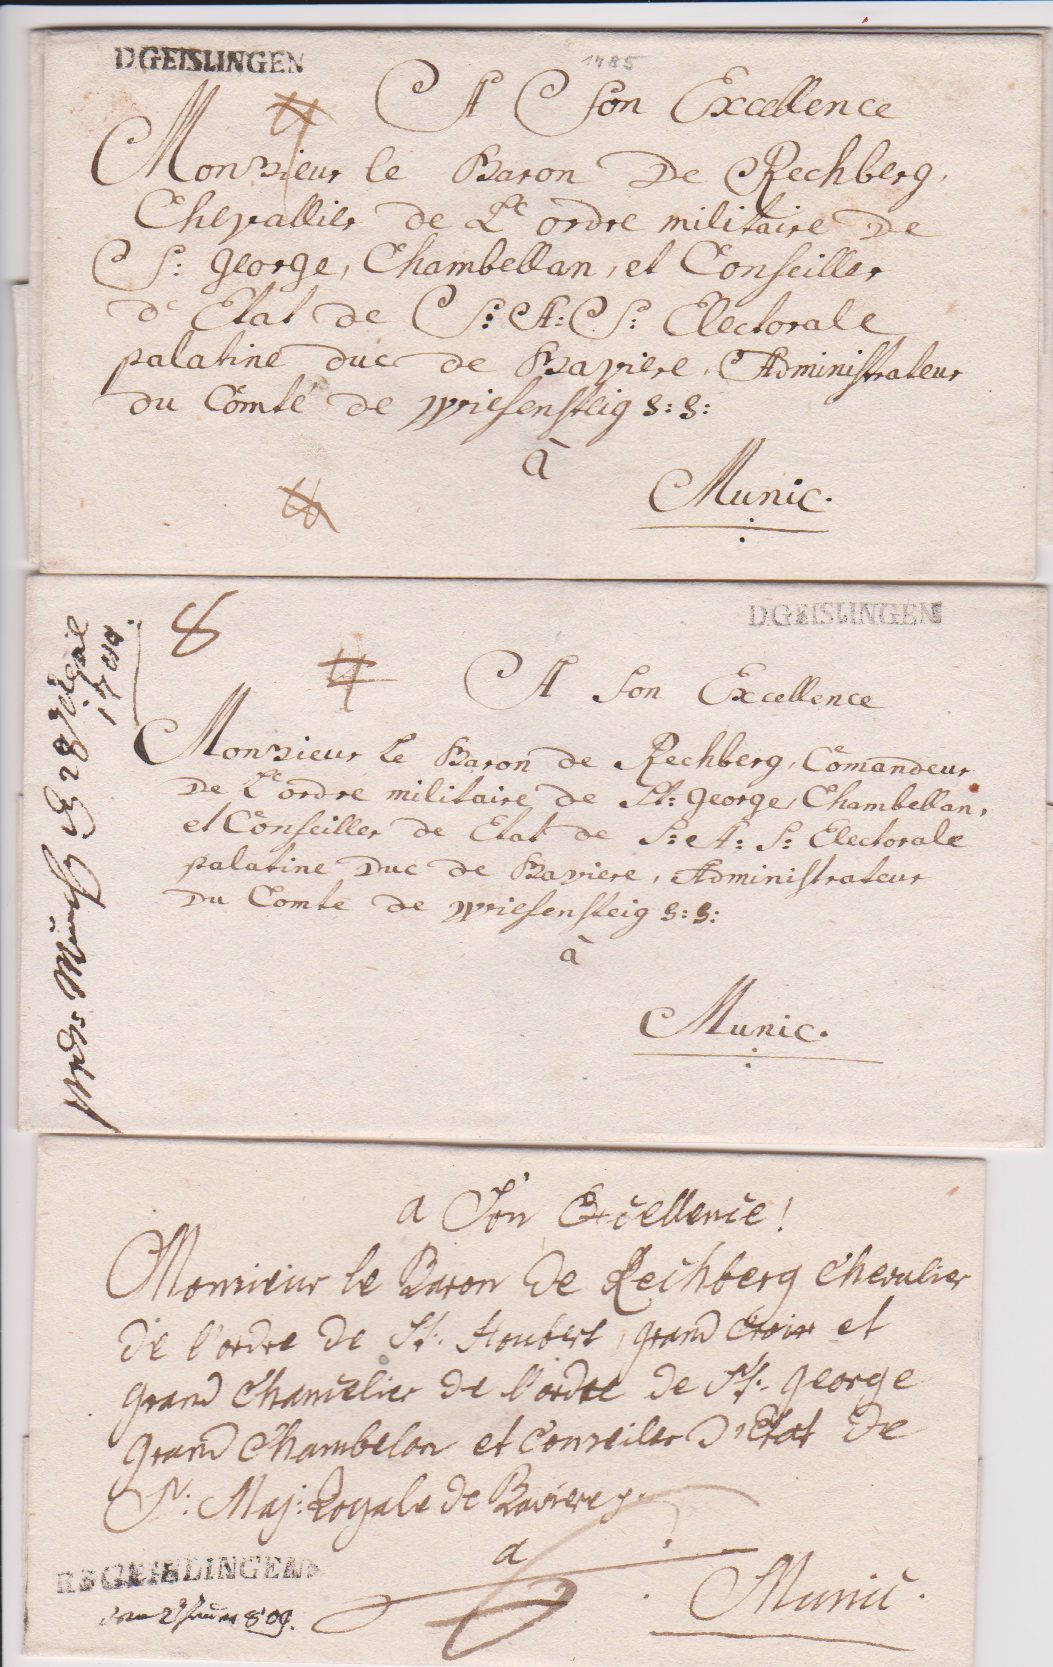 D.GEISLINGEN
1785
A Son Excellence
Monsieur le Baron De Rechberg,
Chevallier de L'ordre militaire De
St: George, Chambellan, et Conseiller
d'Etat de S: A: S: Electorale
palatine duc de Baviere, Administrateur
du Comté de Wiesensteig &: &:
à
Munic.
8
D.GEISLINGEN
A Son Excellence
Monsieur Le Baron de Rechberg, Comandeur
De L'ordre militaire de St: George, Chambellan,
et Conseiller de Etat de S: A: S: Electorale
palatine Duc de Baviere, Administrateur
Du Comte de Wiesensteig &: &:
à
Munic.
a Son Excellence!
Monsieur le Baron de Rechberg Chevalier
de l'ordre de St. Houbert, grand Croix et
grand Chancelier de l'ordre de St. George
grand Chambelan et Conseiler d'Etat de
S: Maj: Royale de Baviere
a
Munic.
R.3.GEISLINGEN
809.